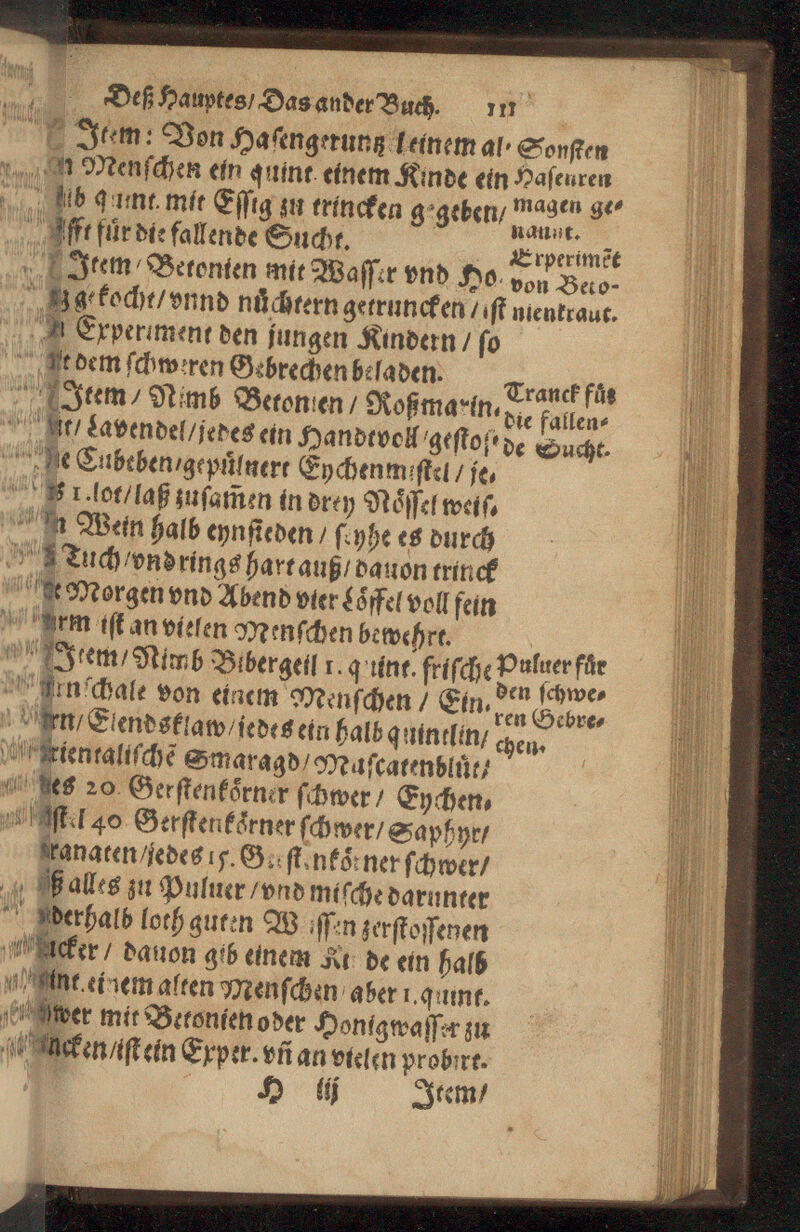 Deß Hauptes/ Das ander Buch. 111
Item: Von Haſengerung keinem al⸗
Menſchen ein quint. einem Kinde ein
quint. mit Eſſig zu trincken gegeben/
für die fallende Sucht.
Sonſten
Haſeuren
magen ge⸗
naunt.
Item/ Betonien mit Waſſer vnd Ho⸗
gekocht/ vnnd nůchtern getruncken/ iſt
Experiment den jungen Kindern/ ſo
dem ſchweren Gebrechen beladen.
Experimẽt
von Beto-
nienkraut.
Item/ Nimb Betonien/ Roßmarin,
Lavendel/ jedes ein Handtvoll/ geſtoſ⸗
Cubeben/ gepůluert Eychenmiſtel/ je,
1. lot/ laß zuſam̃en in drey Nőſſel weiſ,
Wein halb eynſieden/ ſeyhe es durch
Tuch/ vnd rings hart auß/ dauon trinck
Morgen vnd Abend vier Lőffel voll fein
iſt an vielen Menſchen bewehrt.
Tranck fůr
die fallen⸗
de Sucht.
Item/ Nimb Bibergeil 1. quint. friſche
von einem Menſchen/ Ein,
Elendsklaw/ jedes ein halb quintlin/
Smaragd/ Muſcatenblůt/
20. Gerſtenkőrner ſchwer/ Eychen,
40 Gerſtenkőrner ſchwer/ Saphyr/
jedes 15. Gerſtenkőrner ſchwer/
alles zu Puluer/ vnd miſche darunter
loth guten Weiſſen zerſtoſſenen
dauon gib einem Kinde ein halb
einem alten Menſchen aber 1. quint.
mit Betonien oder Honigwaſſer zu
iſt ein Exper. vñ an vielen probirt.
Puluer fůr
den ſchwe⸗
ren Gebre⸗
chen.
H iij Item/